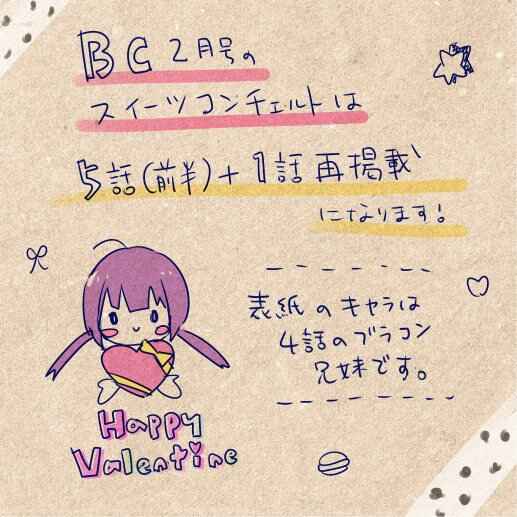 BC 2月号の
スイーツコンチェルトは
5話(前半)+1話再掲載
になります!
表紙のキャラは
4話のブラコン
兄妹です。
Happy
Valentine